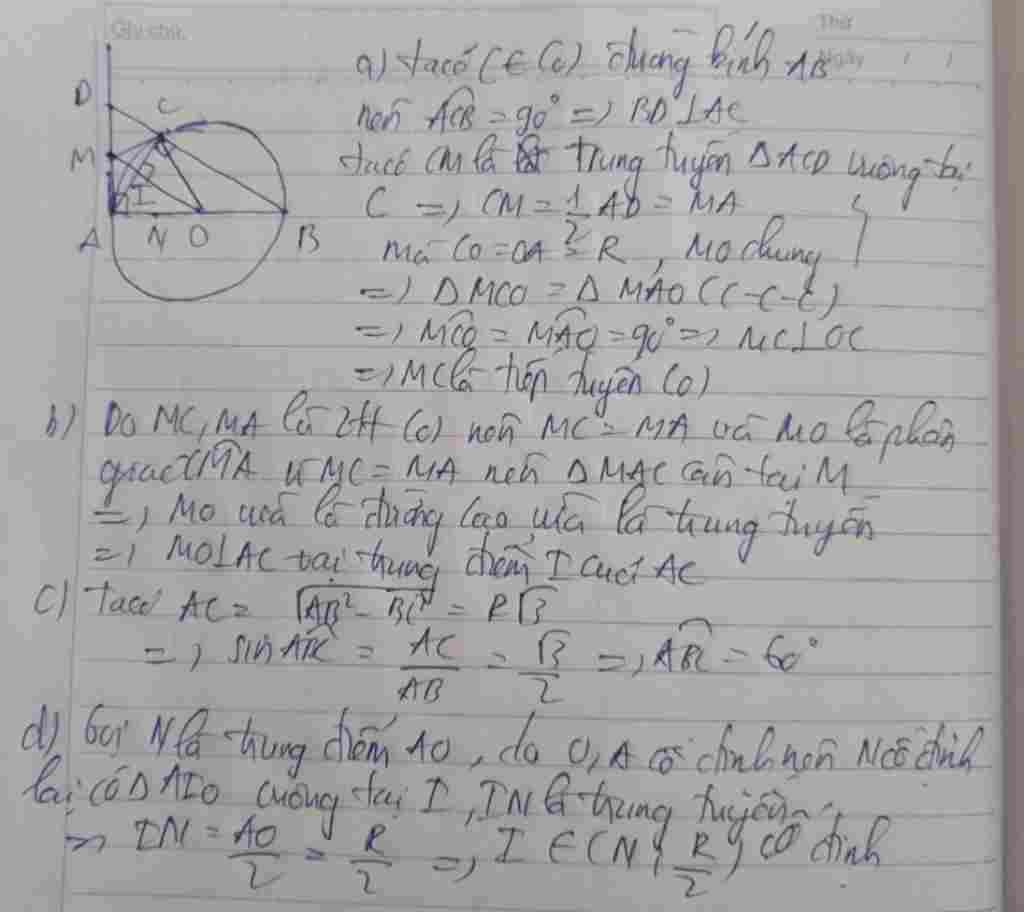 Ghi chú.
Thứ
Ngày / /
D
C
M
I
A N O B
a) ta có C ∈ (O) đường kính AB
nên ACB = 90° => BD ⊥ AC
ta có CM là trung tuyến Δ ACD vuông tại
C => CM = 1/2 AD = MA
Mà CO = OA = R, MO chung
=> Δ MCO = Δ MAO (C-C-C)
=> MCO = MAO = 90° => MC ⊥ OC
=> MC là tiếp tuyến (O)
b) Do MC, MA là 2tt (O) nên MC = MA và MO là phân
giác CMA vì MC = MA nên Δ MAC cân tại M
=> MO vừa là đường cao vừa là trung tuyến
=> MO ⊥ AC tại trung điểm I của AC
c) ta có AC = √AB² - BC² = R√3
=> sin ABC = AC/AB = √3/2 => ABC = 60°
d) Gọi N là trung điểm AO, do O, A cố định nên N cố định
lại có Δ AIO vuông tại I, IN là trung tuyến
=> IN = AO/2 = R/2 => I ∈ (N; R/2) cố định